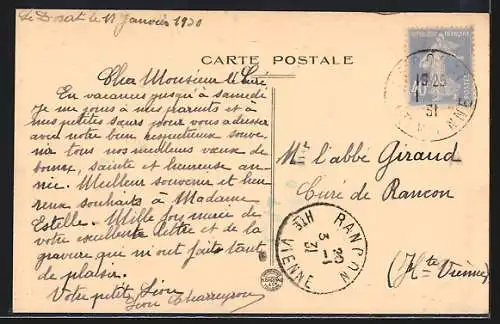 Le Dorat le 11 Janvier 1930
CARTE POSTALE
Cher Monsieur le Curé
En vacances jusqu'à samedi
je me joins à mes parents et à
mes petites sœurs pour vous adresser
avec notre bien respectueux souve-
nir tous nos meilleurs vœux de
bonne, sainte et heureuse an-
née. Meilleur souvenir et heu
reux souhaits à Madame
Estelle. Mille fois merci de
votre excellente lettre et de la
gravure qui m'ont fait tant
de plaisir.
Votre petit Léon
Léon Charreyron
REPUBLIQUE FRANÇAISE
40
31
VIENNE
Mr l'abbé Giraud
Curé de Rancon
(Hte Vienne)
RANCON
HTE VIENNE
31